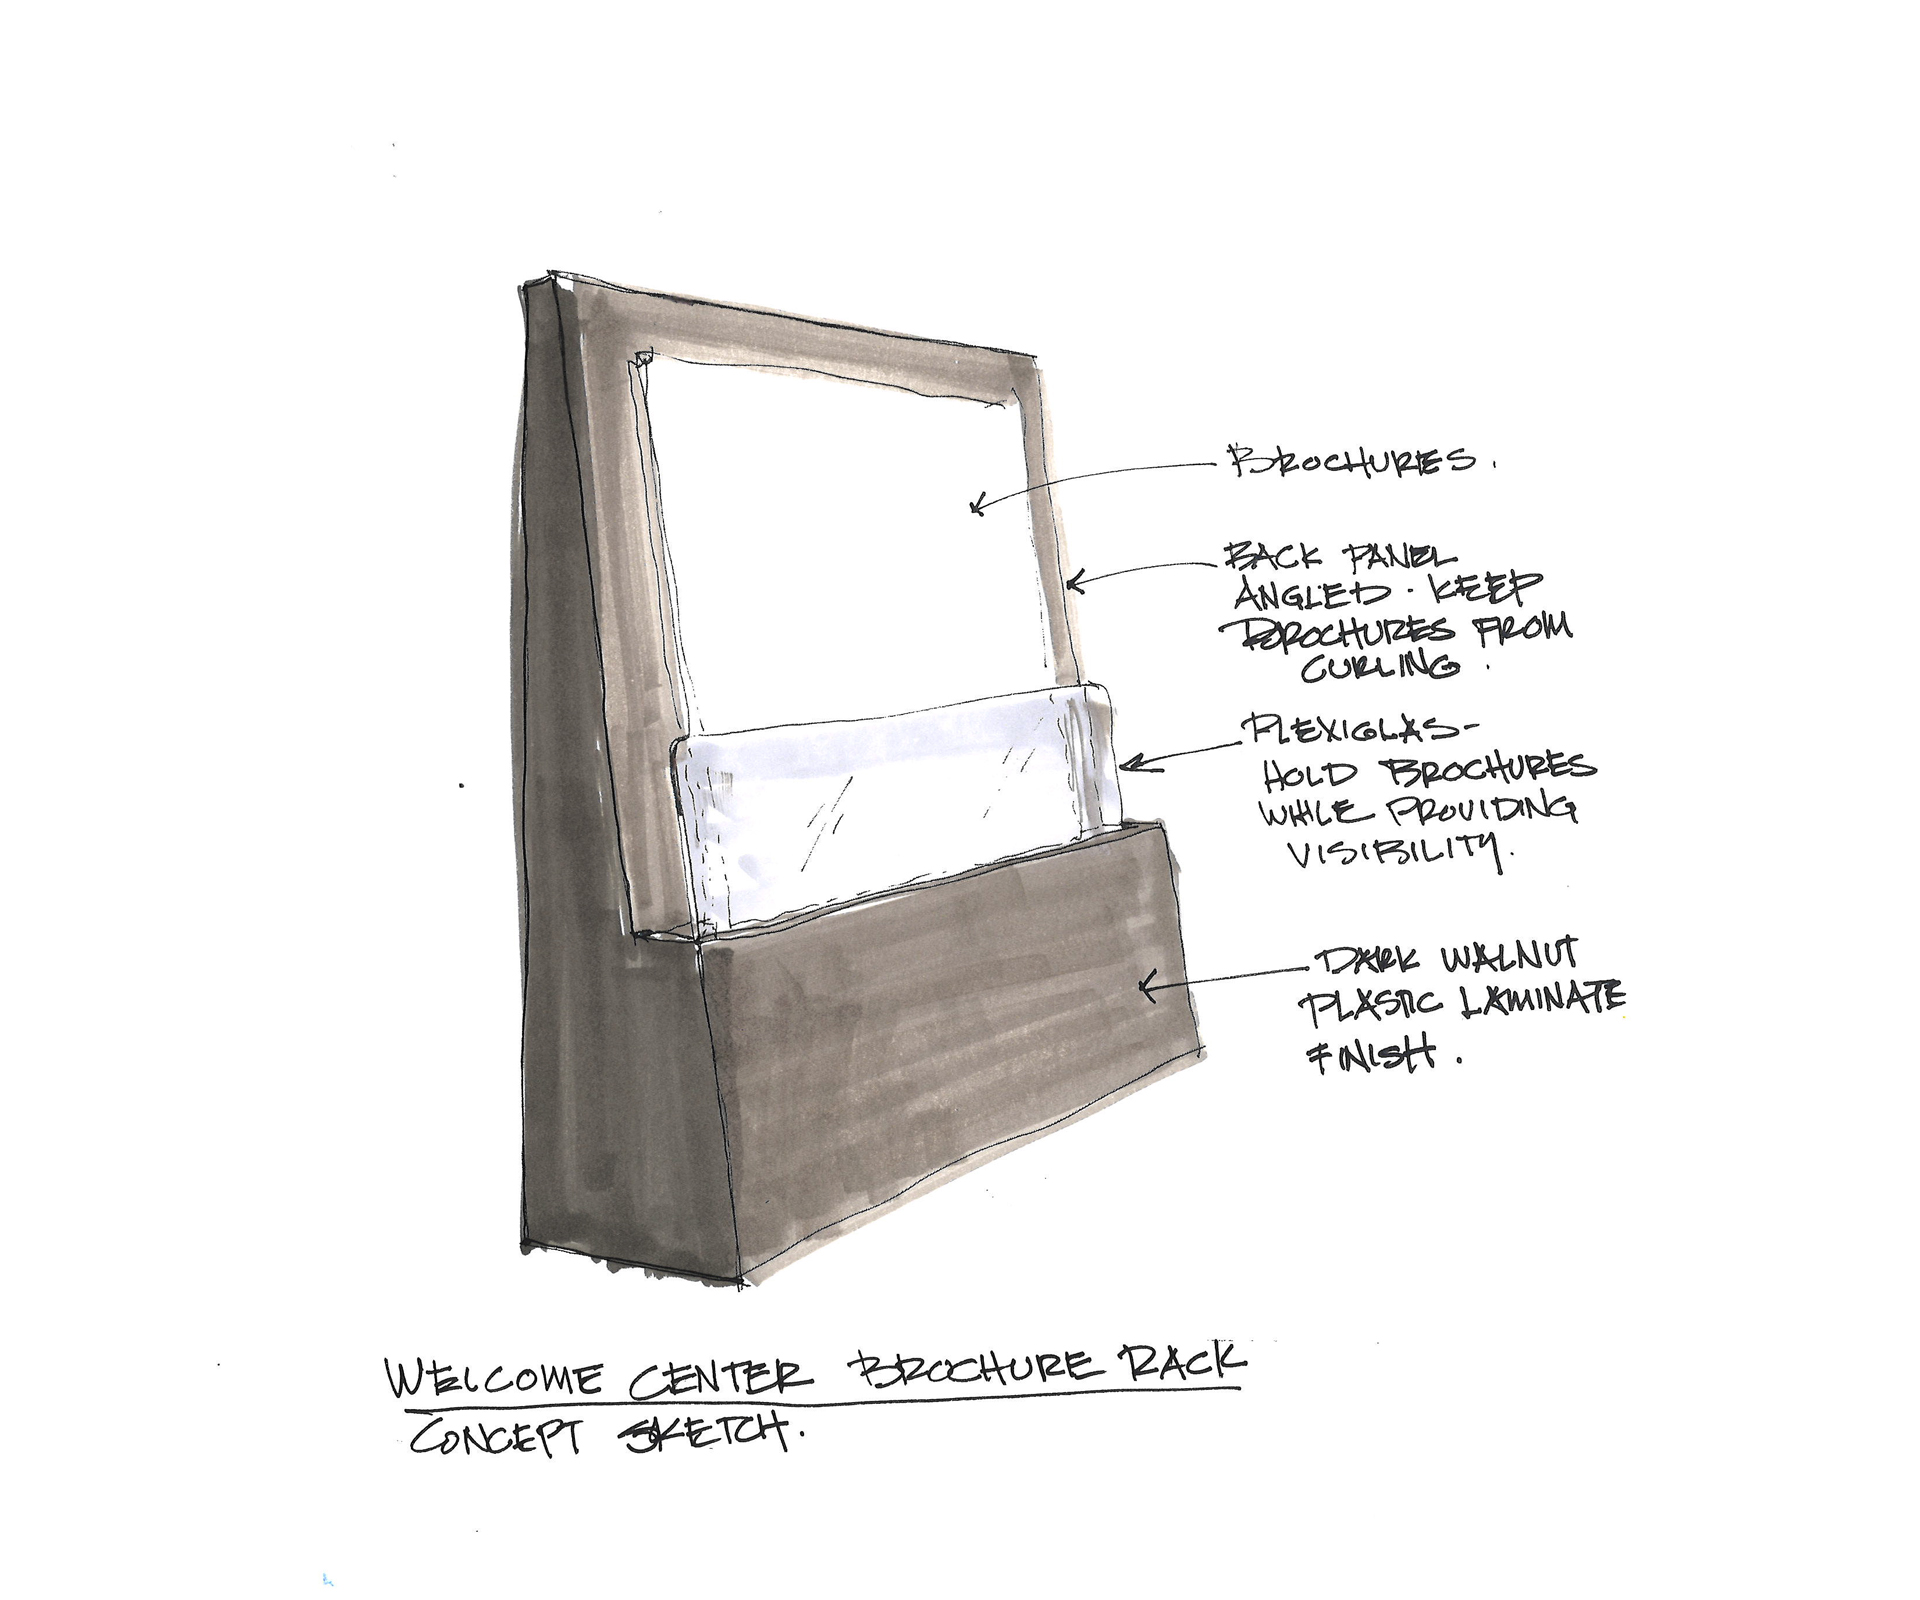 BROCHURES.
BACK PANEL
ANGLED. KEEP
BROCHURES FROM
CURLING.
PLEXIGLAS-
HOLD BROCHURES
WHILE PROVIDING
VISIBILITY.
DARK WALNUT
PLASTIC LAMINATE
FINISH.
WELCOME CENTER BROCHURE RACK
CONCEPT SKETCH.